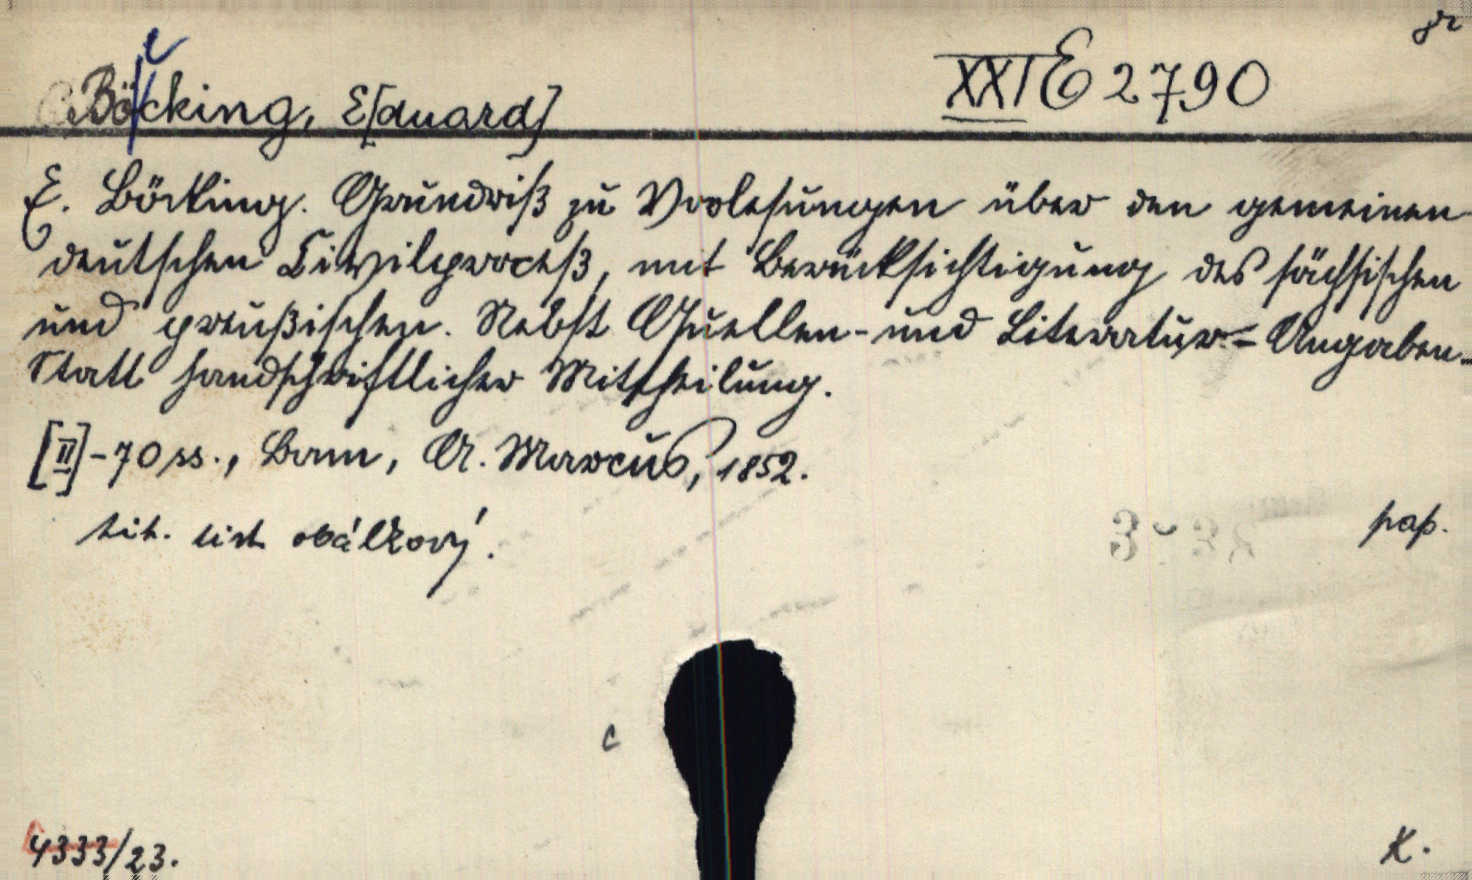 gr
XXI E 2790
Böcking, E[duard]
E. Böcking. Grundriß zu Vorlesungen über den gemeinen
deutschen Civilproceß, mit Berücksichtigung des sächsischen
und preußischen. Nebst Quellen- und Literatur-Angaben
Statt handschriftlicher Mittheilung.
[II]-70 ss., Bonn, A. Marcus, 1852.
tit. list obálkový.
pap.
c
4333/23.
K.